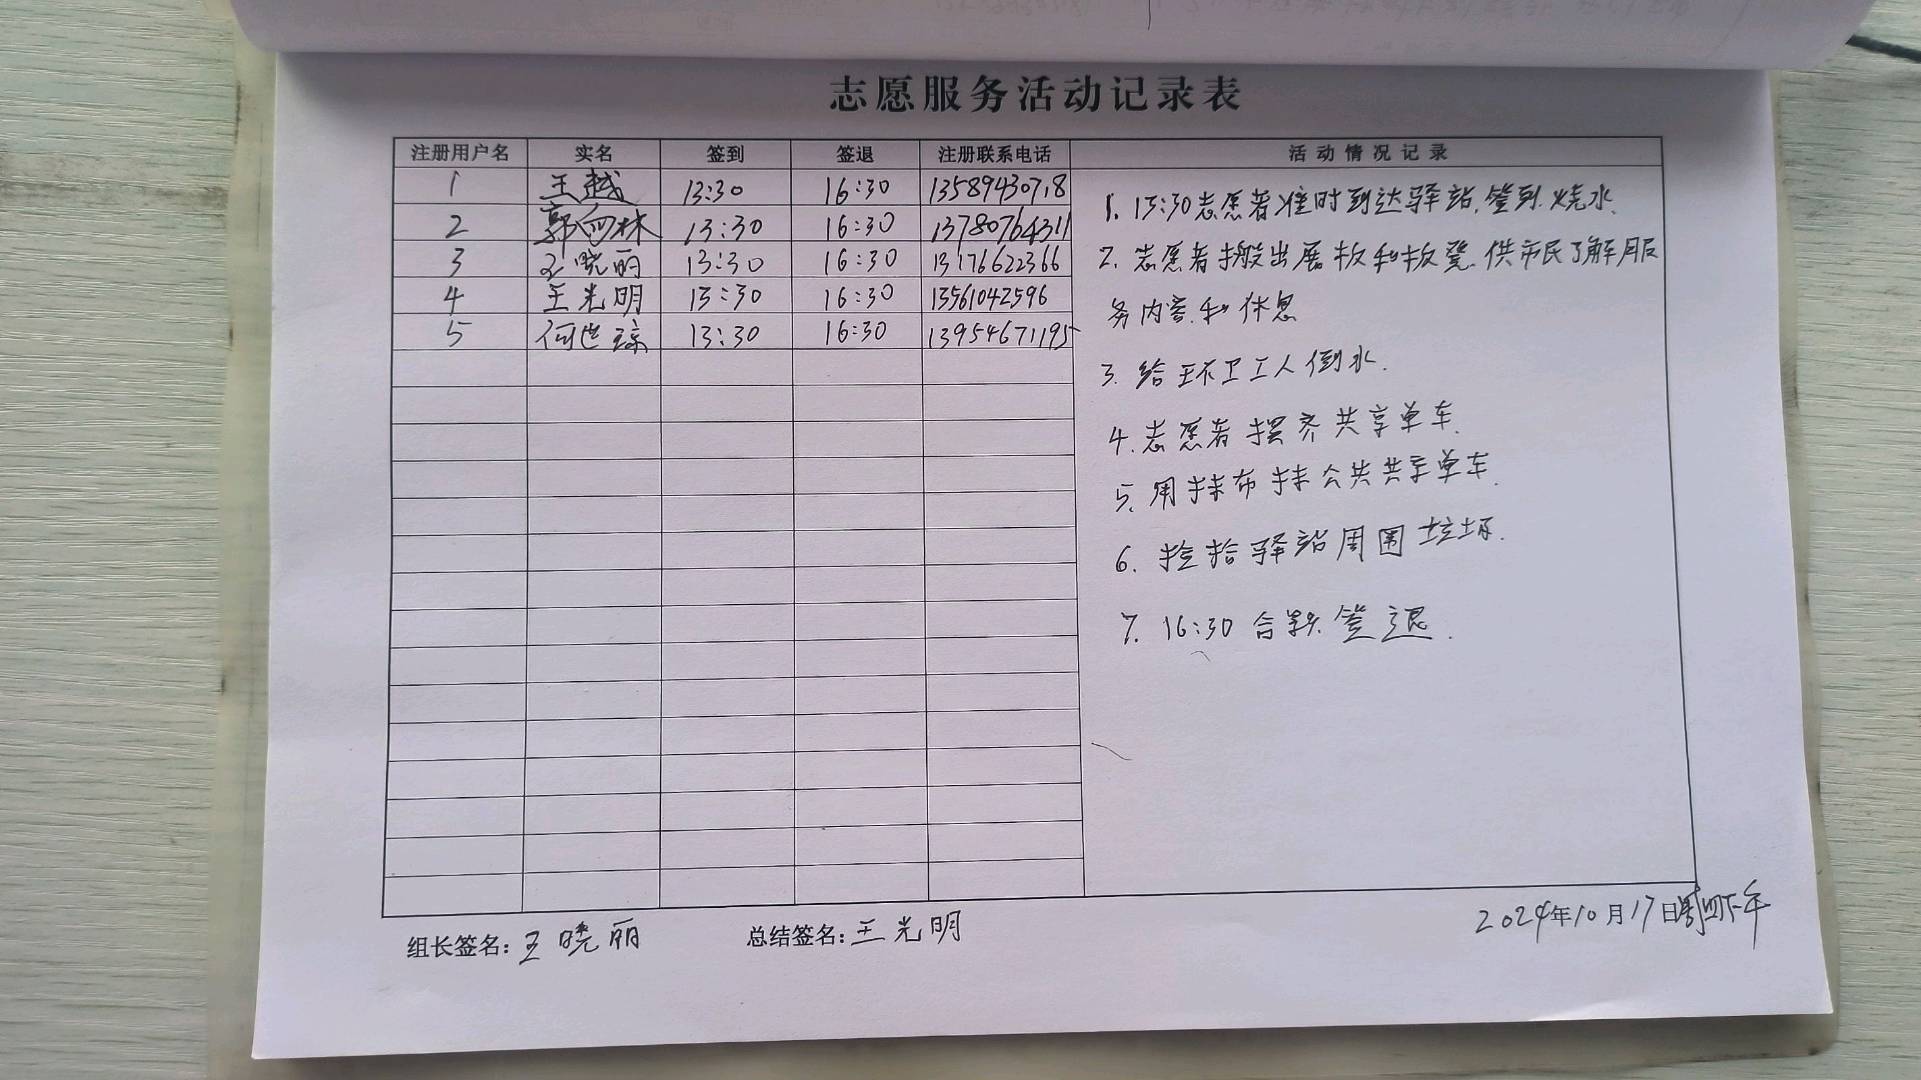 志愿服务活动记录表
注册用户名 实名 签到 签退 注册联系电话 活动情况记录
1 王越 13:30 16:30 13589430718
2 郭向林 13:30 16:30 13780764311
3 王晓丽 13:30 16:30 13176622366
4 王光明 13:30 16:30 13561042596
5 何世琼 13:30 16:30 13954671195
1. 13:30志愿者准时到达驿站,签到.烧水.
2. 志愿者搬出展板和板凳.供市民了解服
务内容.和休息
3. 给环卫工人倒水.
4. 志愿者摆齐共享单车.
5. 用抹布抹公共共享单车.
6. 捡拾驿站周围垃圾.
7. 16:30 合影签退.
组长签名:王晓丽 总结签名:王光明 2024年10月17日周四下午